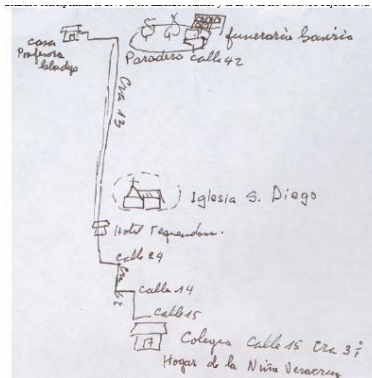 casa
Profesora
Gladys
funeraria Gaviria
Paradero calle 42
Cra 13
Iglesia S. Diego
Hotel Tequendama.
calle 24
calle 14
calle 15
Colegio Calle 15 Cra 3ª
Hogar de la Niña Veracruz